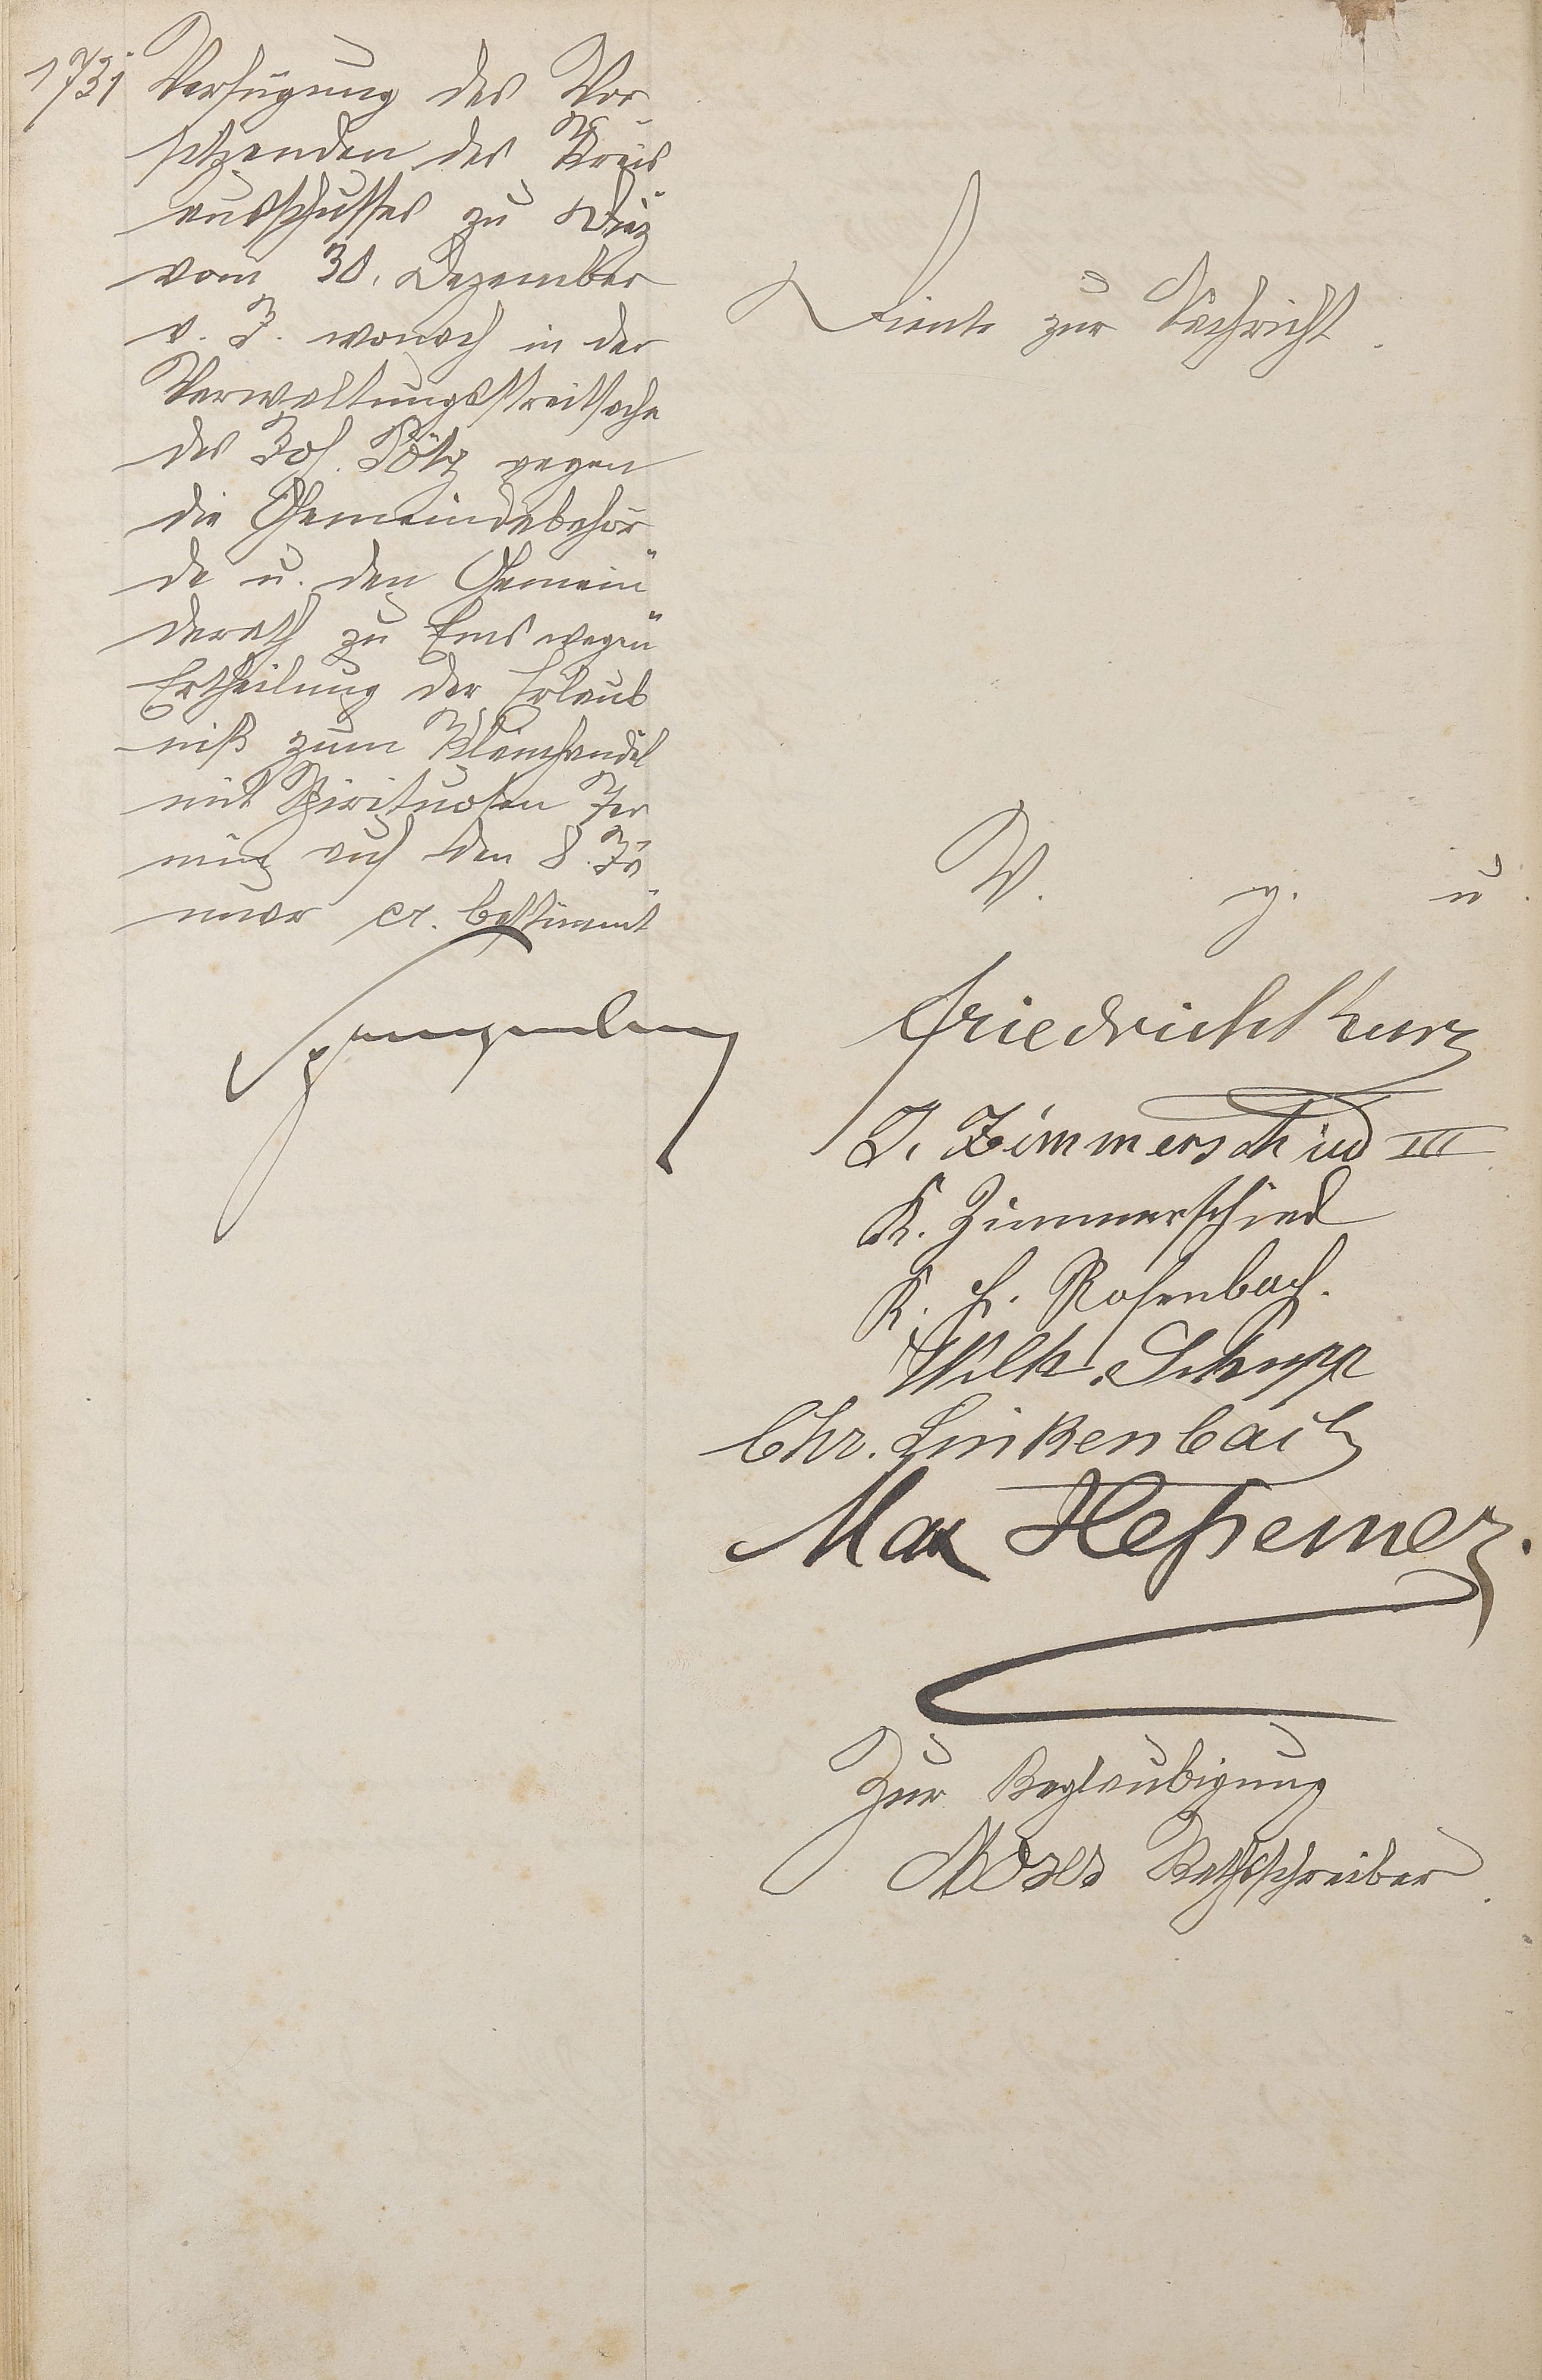 1731
Verfügung des Vor-
sitzenden des Kreis
ausschusses zu Diez
vom 30. Dezember
v. J. wonach in der
Verwaltungsstreitsache
des Joh. Pötz gegen
die Gemeindebehör-
de u. den Gemein-
derath zu Ems wegen
Ertheilung der Erlaub
niß zum Kleinhandel
mit Spirituosen Ter
min auf den 8. Ja-
nuar cr. bestimmt
Spangenberg
Diente zur Nachricht.
V. g. u.
Friedrich Kurz
J. Zimmerschied III
K. Zimmerschied
K. H. Rosenbach.
Wilh. Schupp
Chr. Linkenbach
Max Heßemer.
Zur Beglaubigung
Moser Rathsschreiber.